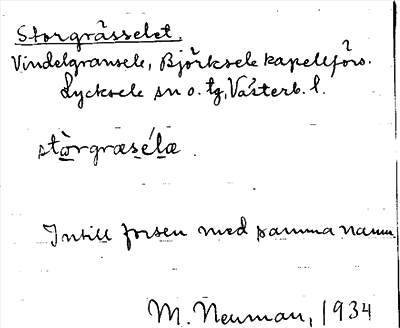 Storgrässelet.
Vindelgransele, Björksele kapellförs.
Lycksele sn o. tg, Västerb. l.
stòrgræsélæ.
Intill forsen med samma namn
M. Neuman, 1934